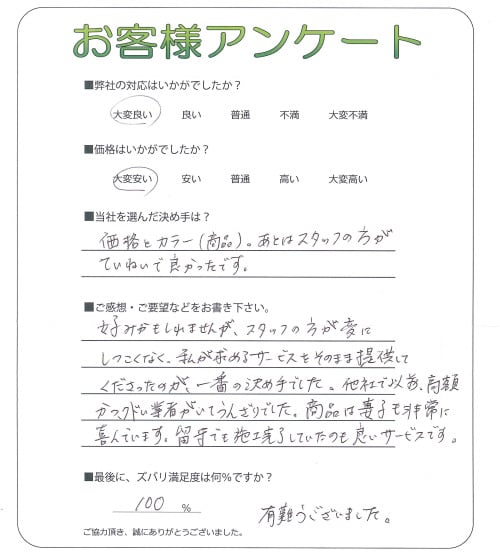 お客様アンケート
■弊社の対応はいかがでしたか？
大変良い　良い　普通　不満　大変不満
■価格はいかがでしたか？
大変安い　安い　普通　高い　大変高い
■当社を選んだ決め手は？
価格とカラー(商品)。あとはスタッフの方が
ていねいで良かったです。
■ご感想・ご要望などをお書き下さい。
好みかもしれませんが、スタッフの方が変に
しつこくなく、私が求めるサービスをそのまま提供して
くださったのが、一番の決め手でした。他社で以前、高額
かつクドい業者がいてうんざりでした。商品は妻子も非常に
喜んでいます。留守でも施工完了していたのも良いサービスです。
■最後に、ズバリ満足度は何％ですか？
100 ％
有難うございました。
ご協力頂き、誠にありがとうございました。